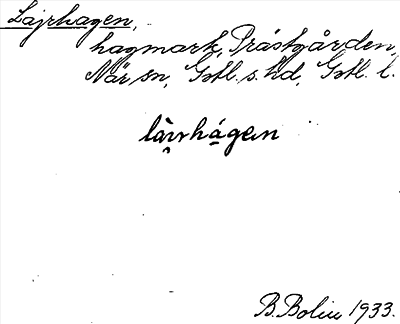 Lajrhagen,
hagmark, Prästgården,
När sn, Gotl. s. hd, Gotl. l.
làirhágen
B. Bolin 1933.